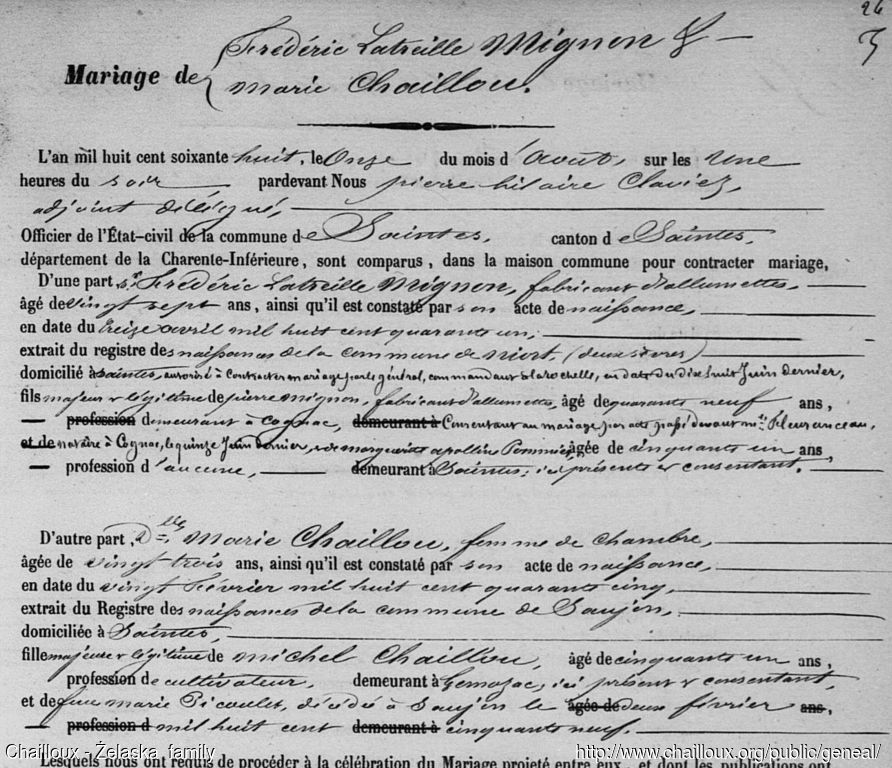 26
3
Frédéric Latreille Mignon &
Mariage de
marie Chaillou.
L'an mil huit cent soixante huit, le Onze du mois d'Août, sur les Une
heures du soir pardevant Nous pierre hilaire Claviez,
adjoint délégué,
Officier de l'État-civil de la commune de Saintes, canton de Saintes,
département de la Charente-Inférieure, sont comparus, dans la maison commune pour contracter mariage,
D'une part, sr Frédéric Latreille Mignon, fabricant d'allumettes,
âgé de vingt sept ans, ainsi qu'il est constaté par son acte de naissance,
en date du treize avril mil huit cent quarante un,
extrait du registre des naissances de la commune de niort (deux sèvres)
domicilié à saintes, autorisé à contracter mariage par le général, commandant de la rochelle, en date du dix huit Juin dernier,
fils majeur & légitime de pierre mignon, fabricant d'allumettes, âgé de quarante neuf ans,
profession demeurant à Cognac, demeurant à Consentant au mariage par acte passé devant me
et de notaire à Cognac, le quinze Juin dernier, & de marguerite apolline âgée de cinquante un ans,
profession d'aucune, demeurant à Saintes, ici présente & consentant.
D'autre part, Dlle Marie Chaillou, femme de chambre,
âgée de vingt trois ans, ainsi qu'il est constaté par son acte de naissance,
en date du vingt Février mil huit cent quarante cinq,
extrait du Registre des naissances de la commune de Saujon,
domiciliée à Saintes,
fille majeure & légitime de michel Chaillou, âgé de cinquante un ans,
profession de cultivateur, demeurant à Gemozac, ici présent & consentant,
et de feue marie Picoulet, décédée à Saujon le âgée de deux février ans,
profession d mil huit cent demeurant à cinquante neuf.
Lesquels nous ont requis de procéder à la célébration du Mariage projeté entre eux, et dont les publications ont
Chailloux - Żelaska family
http://www.chailloux.org/public/geneal/